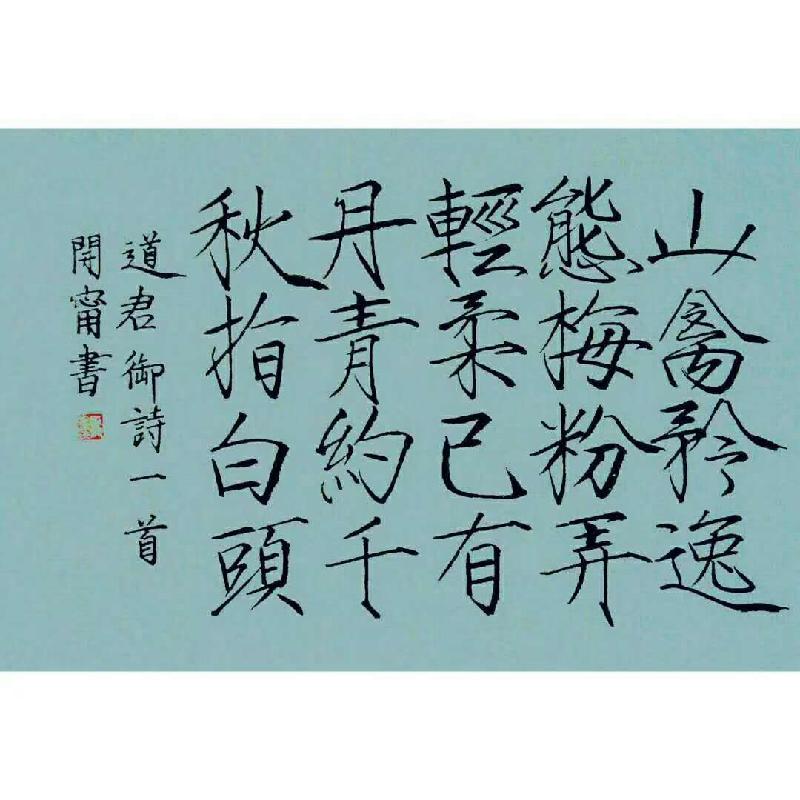 山禽矜逸
態梅粉弄
輕柔已有
丹青約千
秋指白頭
道君御詩一首
開甯書